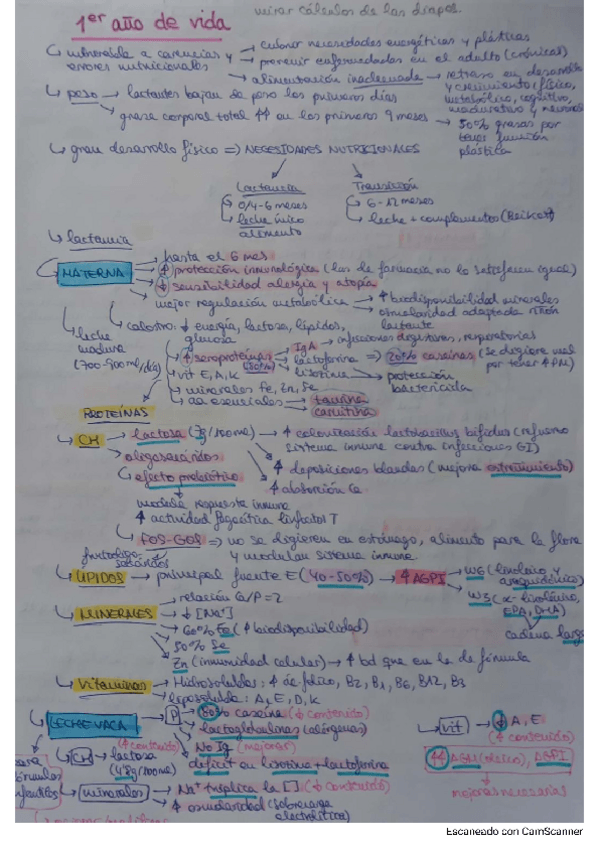 mirar cálculos de las diapos.
1er año de vida
↳ vulnerable a carencias y errores nutricionales
→ cubrir necesidades energéticas y plásticas
→ prevenir enfermedades en el adulto (crónicas)
→ alimentación inadecuada → retraso en desarrollo y crecimiento (físico, metabólico, cognitivo, madurativo y
↳ peso → lactantes bajan de peso los primeros días
↳ grasa corporal total ↑↑ en los primeros 9 meses → 50% grasas por tener función plástica
↳ gran desarrollo físico => NECESIDADES NUTRICIONALES
Lactancia
↳ 0/4-6 meses
↳ leche único alimento
Transición
↳ 6-12 meses
↳ leche + complementos (Beikost)
↳ lactancia
MATERNA
→ hasta el 6 mes
→ ↑ protección inmunológica (las de farmacia no lo satisfacen igual)
→ ↓ sensibilidad alergia y atopia
→ mejor regulación metabólica → ↑ biodisponibilidad minerales
→ osmolaridad adaptada riñón lactante
↳ calostro: ↓ energía, lactosa, lípidos, glucosa
↳ leche madura (700-900ml/día)
→ ↑ seroproteínas (80%)
→ IgA → infecciones digestivas, respiratorias
→ lactoferrina => 20% caseínas (se digiere mal por tener ↑ PM)
→ lisozima → protección bactericida
→ vit E, A, K
→ minerales Fe, Zn, Se
→ aa esenciales → taurina
→ carnitina
PROTEÍNAS
↳ CH → lactosa (7g/100ml) → ↑ colonización lactobacillus bifidus (refuerzo sistema inmune contra infecciones GI)
→ ↑ deposiciones blandas (mejora estreñimiento)
→ ↑ absorción Ca
→ oligosacáridos
↳ efecto prebiótico
modula respuesta inmune
↑ actividad fagocítica linfocitos T
↳ FOS-GOS => no se digieren en estómago, alimento para la flora y modulan sistema inmune.
↳ LÍPIDOS → principal fuente E (40-50%) → ↑ AGPI → W6 (linoleico y araquidónico)
→ W3 (α-linolénico, EPA, DHA)
cadena larga
↳ MINERALES → relación Ca/P = 2
→ ↓ [Na+]
→ 60% Fe (↑ biodisponibilidad)
→ 50% Se
→ Zn (inmunidad celular) → ↑ bd que en la de fórmula
↳ Vitaminas → Hidrosolubles: ↑ ác. fólico, B2, B1, B6, B12, B3
→ liposoluble: A, E, D, K
↳ LECHE VACA
→ P → 80% caseína (↓ contenido)
→ lactoglobulinas (alérgenas)
→ No Ig (mejorar)
→ déficit en lisozima + lactoferrina
↳ CH → lactosa (4'8g/100ml)
(↑ contenido)
↳ minerales → Na+ triplica la [ ] (↓ contenido)
→ ↑ osmolaridad (sobrecarga electrolítica)
↳ vit → ↓ A, E
(↑ contenido)
AGPI
mejoras necesarias
Escaneado con CamScanner